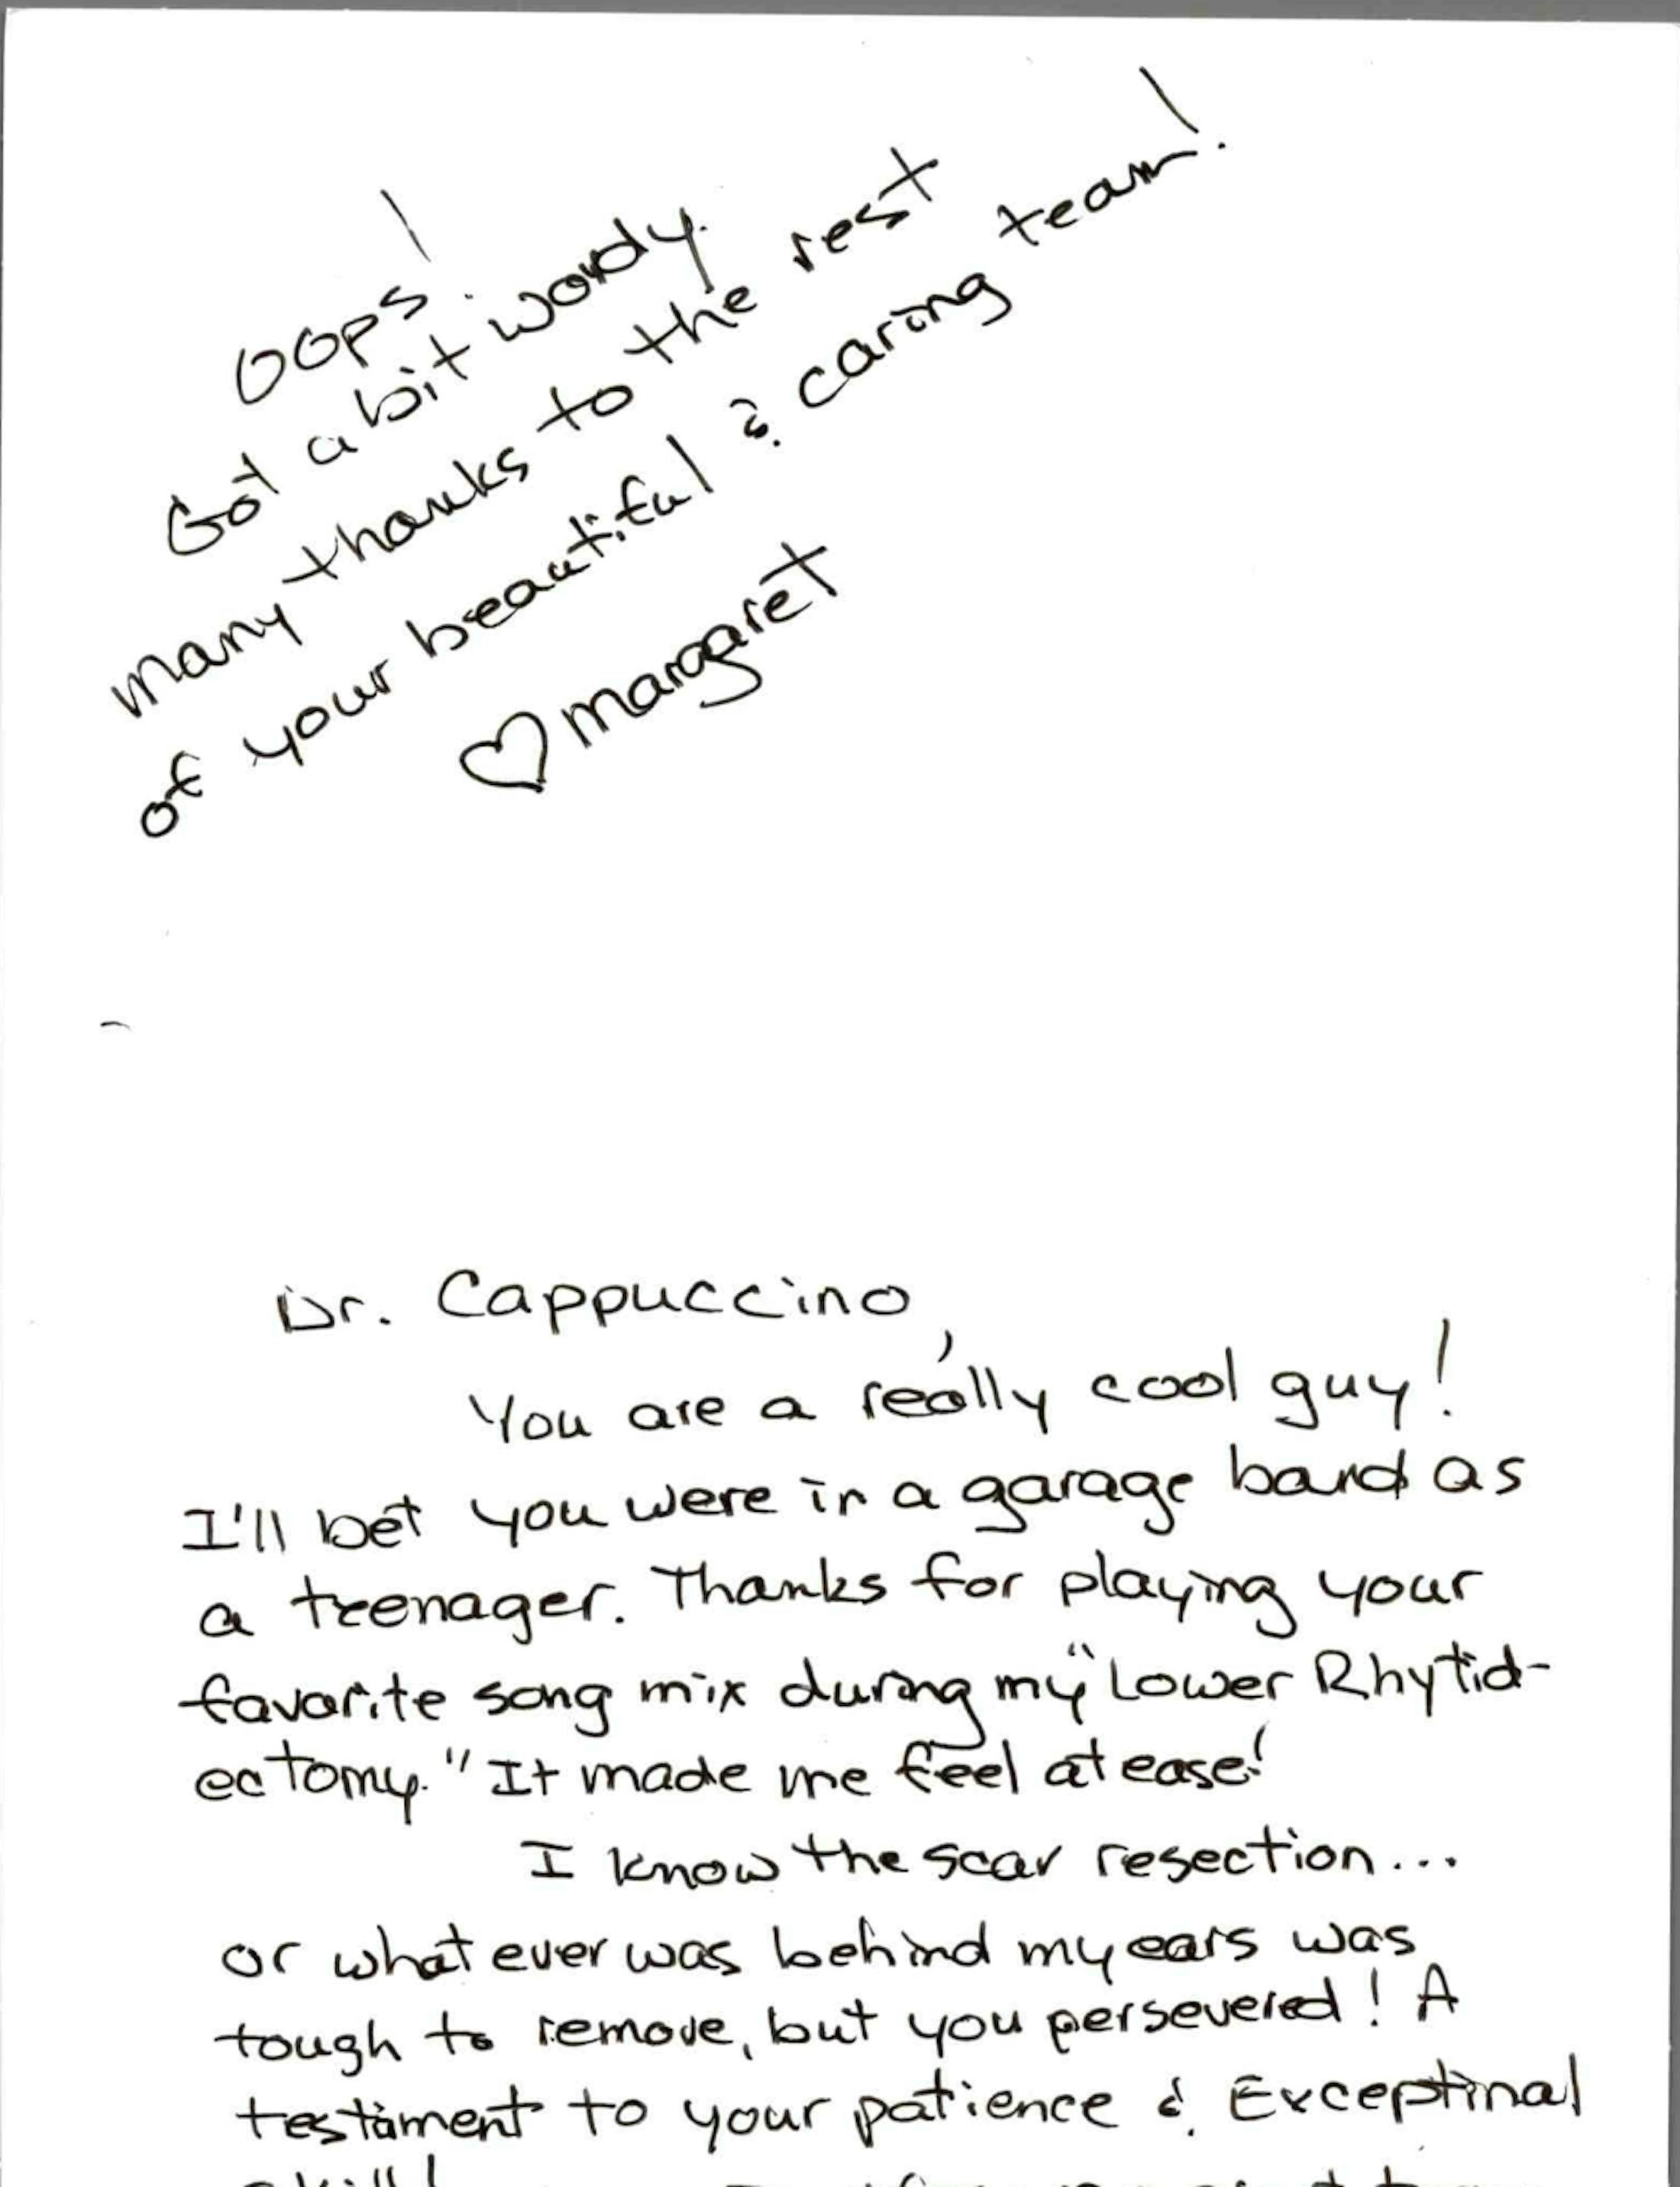 OOPS!
Got a bit wordy.
many thanks to the rest
of your beautiful & caring team!
♡ margaret
Dr. Cappuccino,
You are a really cool guy!
I'll bet you were in a garage band as
a teenager. Thanks for playing your
favorite song mix during my "Lower Rhytid-
ectomy." It made me feel at ease!
I know the scar resection...
or what ever was behind my ears was
tough to remove, but you persevered! A
testament to your patience & Exceptinal
skill!